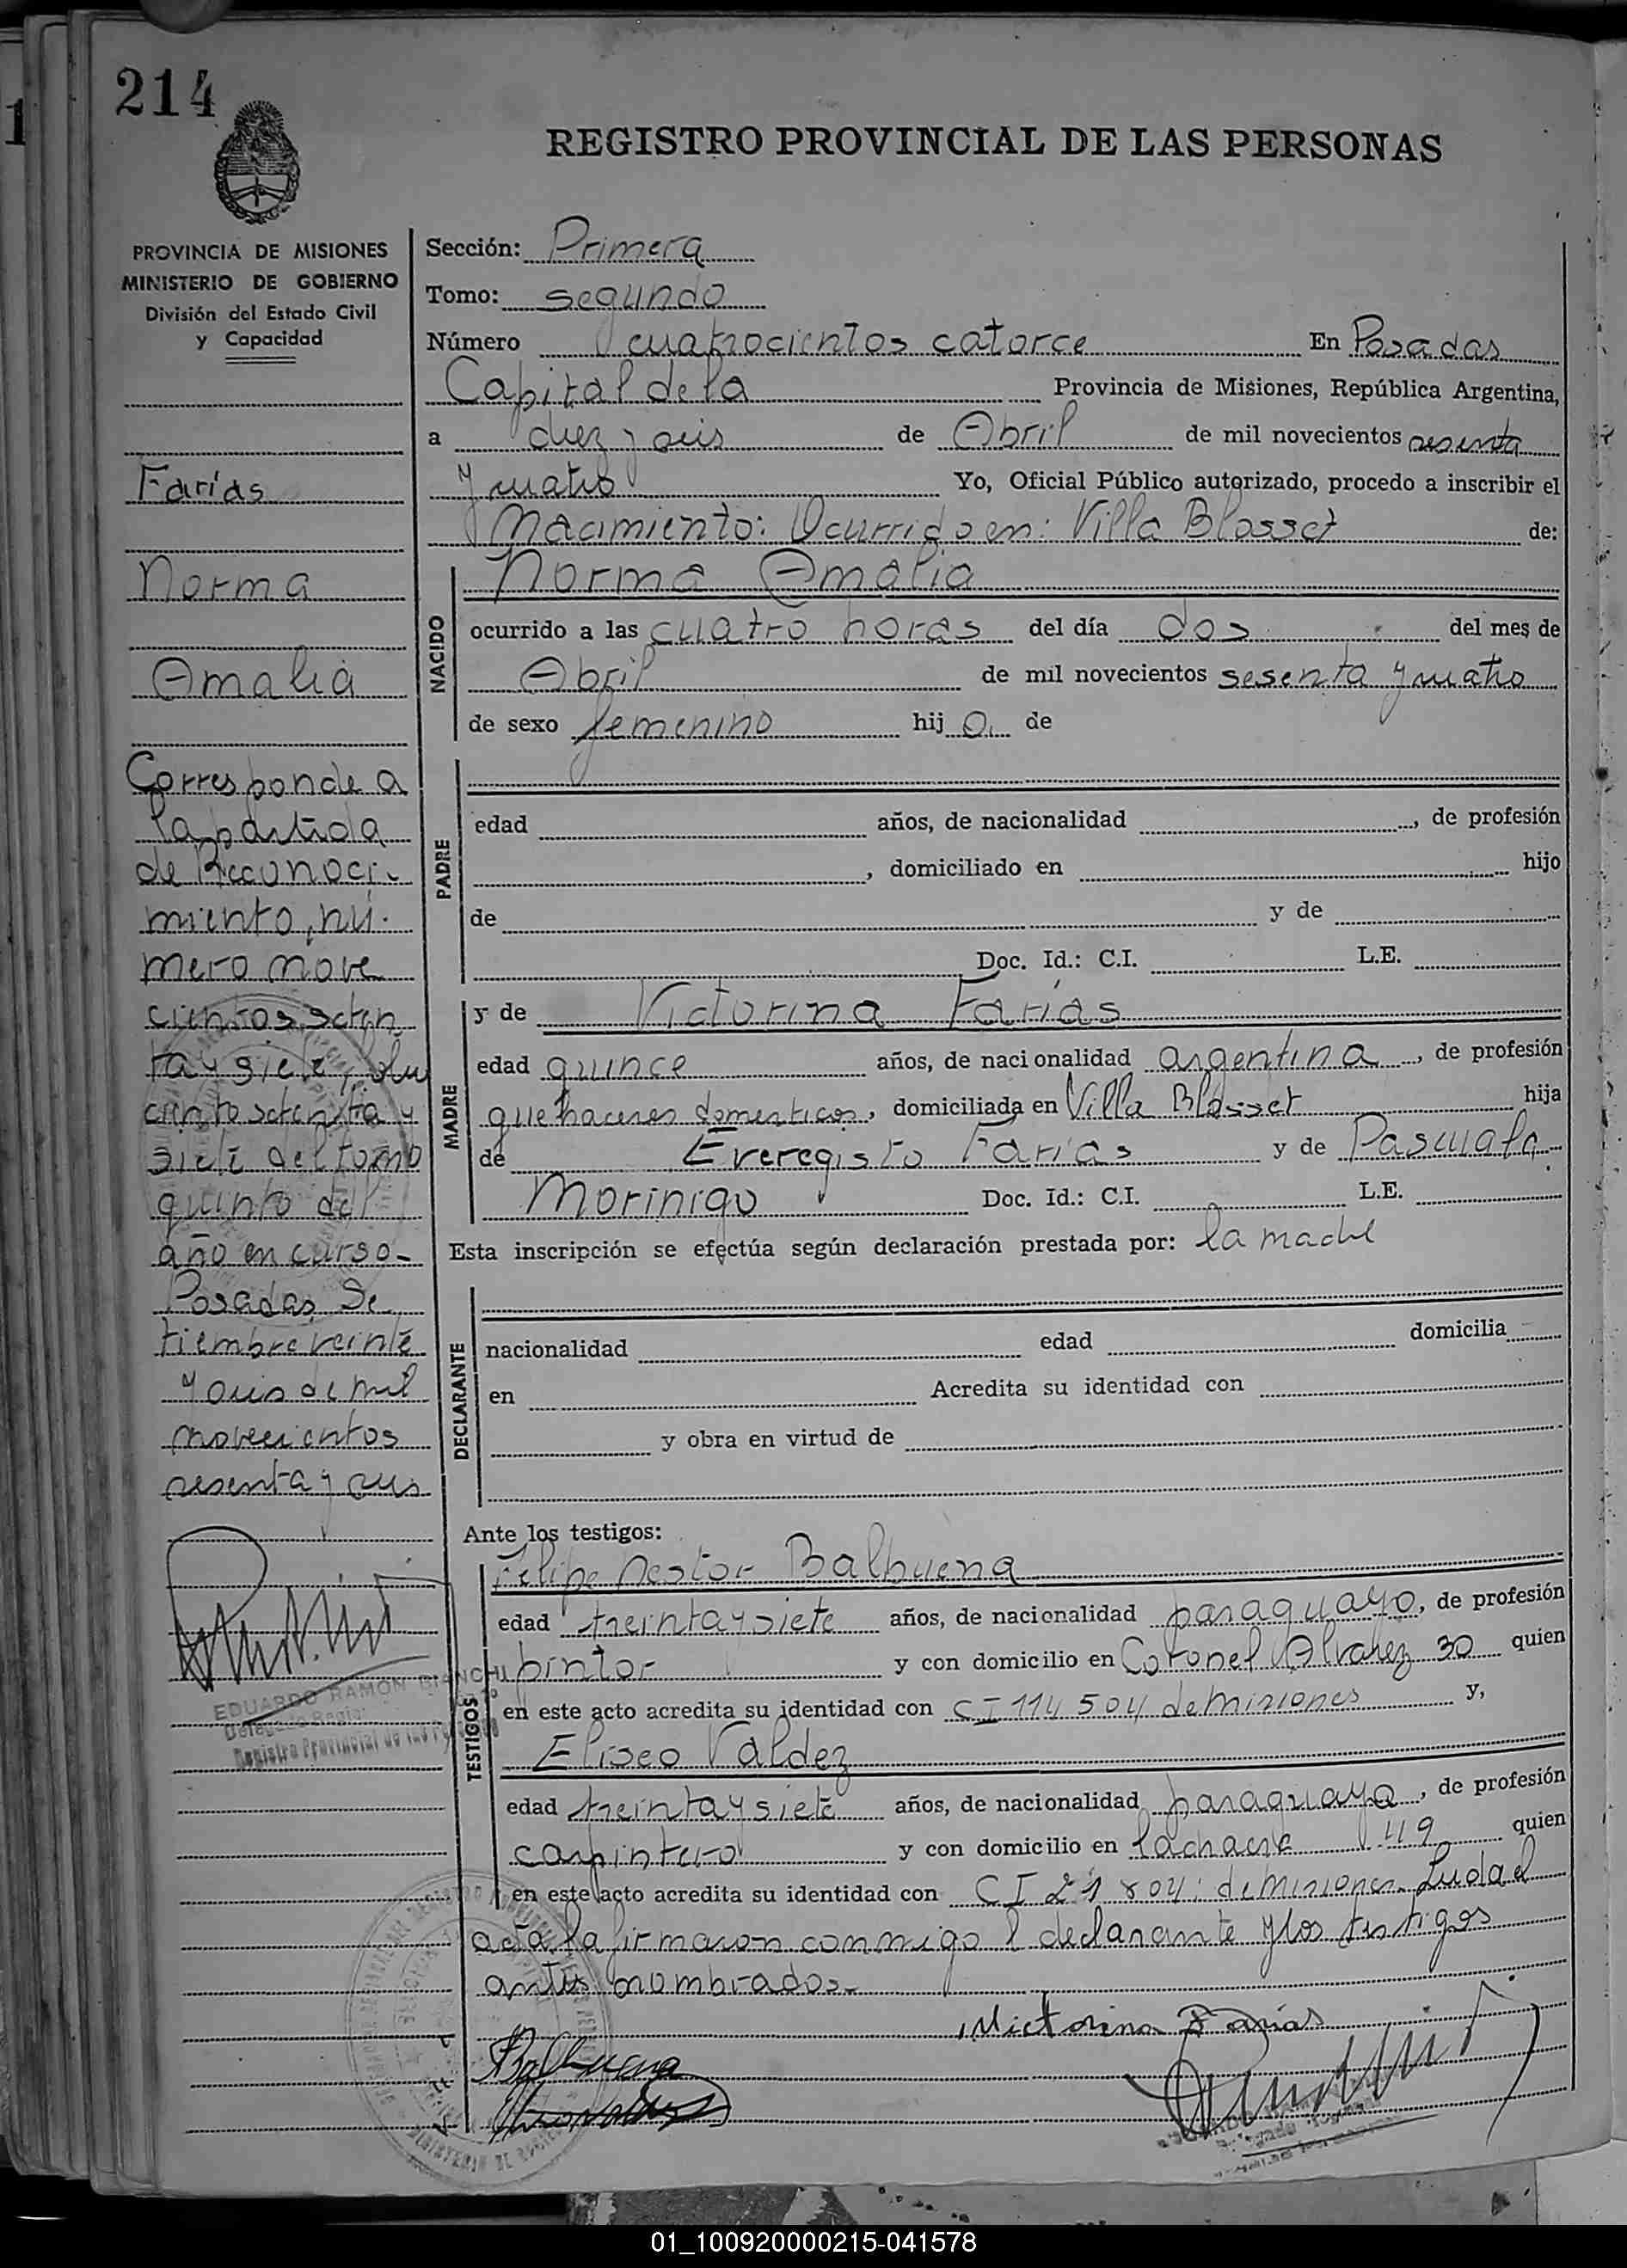 214
REGISTRO PROVINCIAL DE LAS PERSONAS
PROVINCIA DE MISIONES
MINISTERIO DE GOBIERNO
División del Estado Civil
y Capacidad
Farías
Norma
Amalia
Corresponde a
la partida
de Reconoci-
miento, nú-
mero nove
cientos seten
ta y siete, folio
ciento setenta y
siete del tomo
quinto del
año en curso-
Posadas, Se
tiembre veinte
y seis de mil
novecientos
sesenta y seis
EDUARDO RAMON BIANCHI
Registro Provincial de las
Sección: Primera
Tomo: segundo
Número cuatrocientos catorce En Posadas
Capital de la Provincia de Misiones, República Argentina,
a diez y seis de Abril de mil novecientos sesenta
y cuatro Yo, Oficial Público autorizado, procedo a inscribir el
Nacimiento: Ocurrido en: Villa Blosset de:
NACIDO
Norma Amalia
ocurrido a las cuatro horas del día dos del mes de
Abril de mil novecientos sesenta y cuatro
de sexo femenino hij a. de
PADRE
edad años, de nacionalidad , de profesión
, domiciliado en hijo
de y de
Doc. Id.: C.I. L.E.
MADRE
y de Victorina Farías
edad quince años, de nacionalidad argentina , de profesión
quehaceres domesticos, domiciliada en Villa Blosset hija
de Everegisto Farías y de Pascuala
Morinigo Doc. Id.: C.I. L.E.
Esta inscripción se efectúa según declaración prestada por: la madre
DECLARANTE
nacionalidad edad domicilia
en Acredita su identidad con
y obra en virtud de
Ante los testigos:
TESTIGOS
Felipe Nestor Balbuena
edad treinta y siete años, de nacionalidad paraguayo, de profesión
pintor y con domicilio en Coronel Alvarez 30 quien
en este acto acredita su identidad con CI 114504 de Misiones y,
Eliseo Valdez
edad treinta y siete años, de nacionalidad paraguaya , de profesión
carpintero y con domicilio en la chacra 149 quien
en este acto acredita su identidad con CI 21804: de Misiones. Leida el
acta, la firmaron conmigo l declarante y los testigos
antes nombrados.-
Victorina Farías
Balbuena
01_100920000215-041578